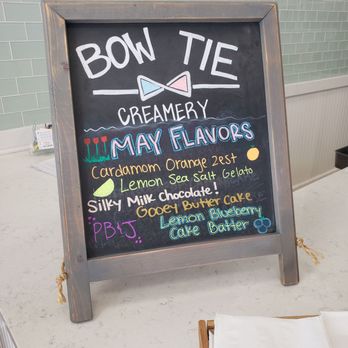 BOW TIE
CREAMERY
MAY FLAVORS
Cardamom Orange zest
Lemon Sea Salt Gelato
Silky Milk Chocolate!
Gooey Butter Cake
PB&J
Lemon Blueberry
Cake Batter